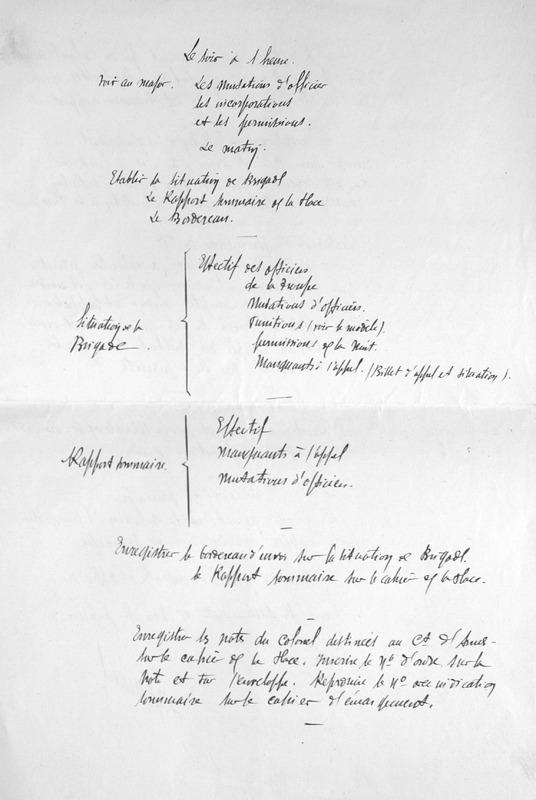 Le soir à 1 heure.
Voir au major. Les mutations d'officier
les incorporations
et les permissions.
Le matin.
Etablir la situation de Brigade
Le Rapport sommaire de la Place
Le Bordereau.
Situation de la
Brigade.
Effectif des officiers
de la troupe
Mutations d'officiers.
Punitions (voir le modèle).
permissions de la nuit.
Manquants à l'appel. (Billet d'appel et situation).
Rapport sommaire.
Effectif
Manquants à l'appel
Mutations d'officiers.
Enregistrer le bordereau d'envoi sur la situation de Brigade.
le Rapport sommaire sur le cahier de la Place.
Enregistrer les note du Colonel destinées au Ct d'Armes
sur le cahier de la Place. Inscrire le No d'ordre sur la
note et sur l'enveloppe. Reproduire le No avec indication
sommaire sur le cahier d'émargement.